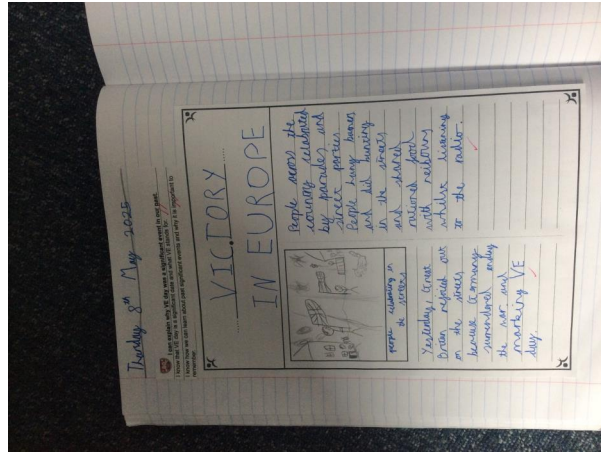 Thursday 8th May 2025
I can explain why VE day was a significant event in our past.
I know that VE day is a significant date and what VE stands for.
I know how we can learn about past significant events and why it is important to
remember.
VICTORY
IN EUROPE
people celebrating in
the streets
Yesterday, Great
Britain rejoiced out
on the streets
because Germany
surrendered ending
the war and
marking VE
day.
People across the
country celebrated
by parades and
street parties
People hang banners
and did bunting
in the streets
and shared
rationed food
with neibours
whilst listening
to the radio.